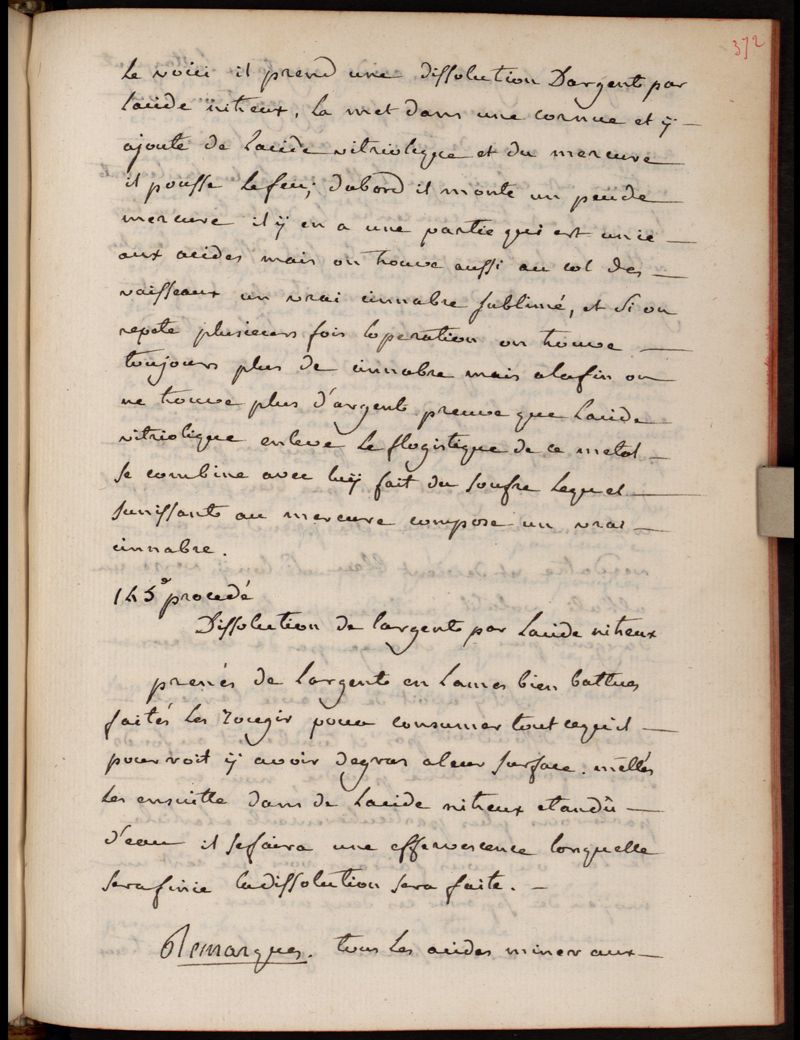 372
Le voici il prend une dissolution Dargent par
lacide nitreux, la met dans une cornue et ÿ
ajoute de lacide vitriolique et du mercure
il pousse le feu; dabord il monte un peu de
mercure il ÿ en a une partie qui est unie
aux acides mais on trouve aussi au col des
vaisseaux un vrai cinnabre sublimé, et si on
repete plusieurs fois loperation on trouve
toujours plus de cinnabre mais alafin on
ne trouve plus d'argent preuve que lacide
vitriolique enleve le flogistique de ce metal
se combine avec luÿ fait du soufre lequel
sunissant au mercure compose un vrai
cinnabre.
145e procedé
Dissolution de largent par lacide nitreux
prenés de largent en lames bien battues
faités les rougir pour consumer tout cequil
pourroit ÿ avoir degras aleur surface. mettés
les ensuitte dans de lacide nitreux etandû
d'eau il sefaira une effervescence lorsquelle
serafinie ladissolution sera faite.
Remarques. tous les acides mineraux